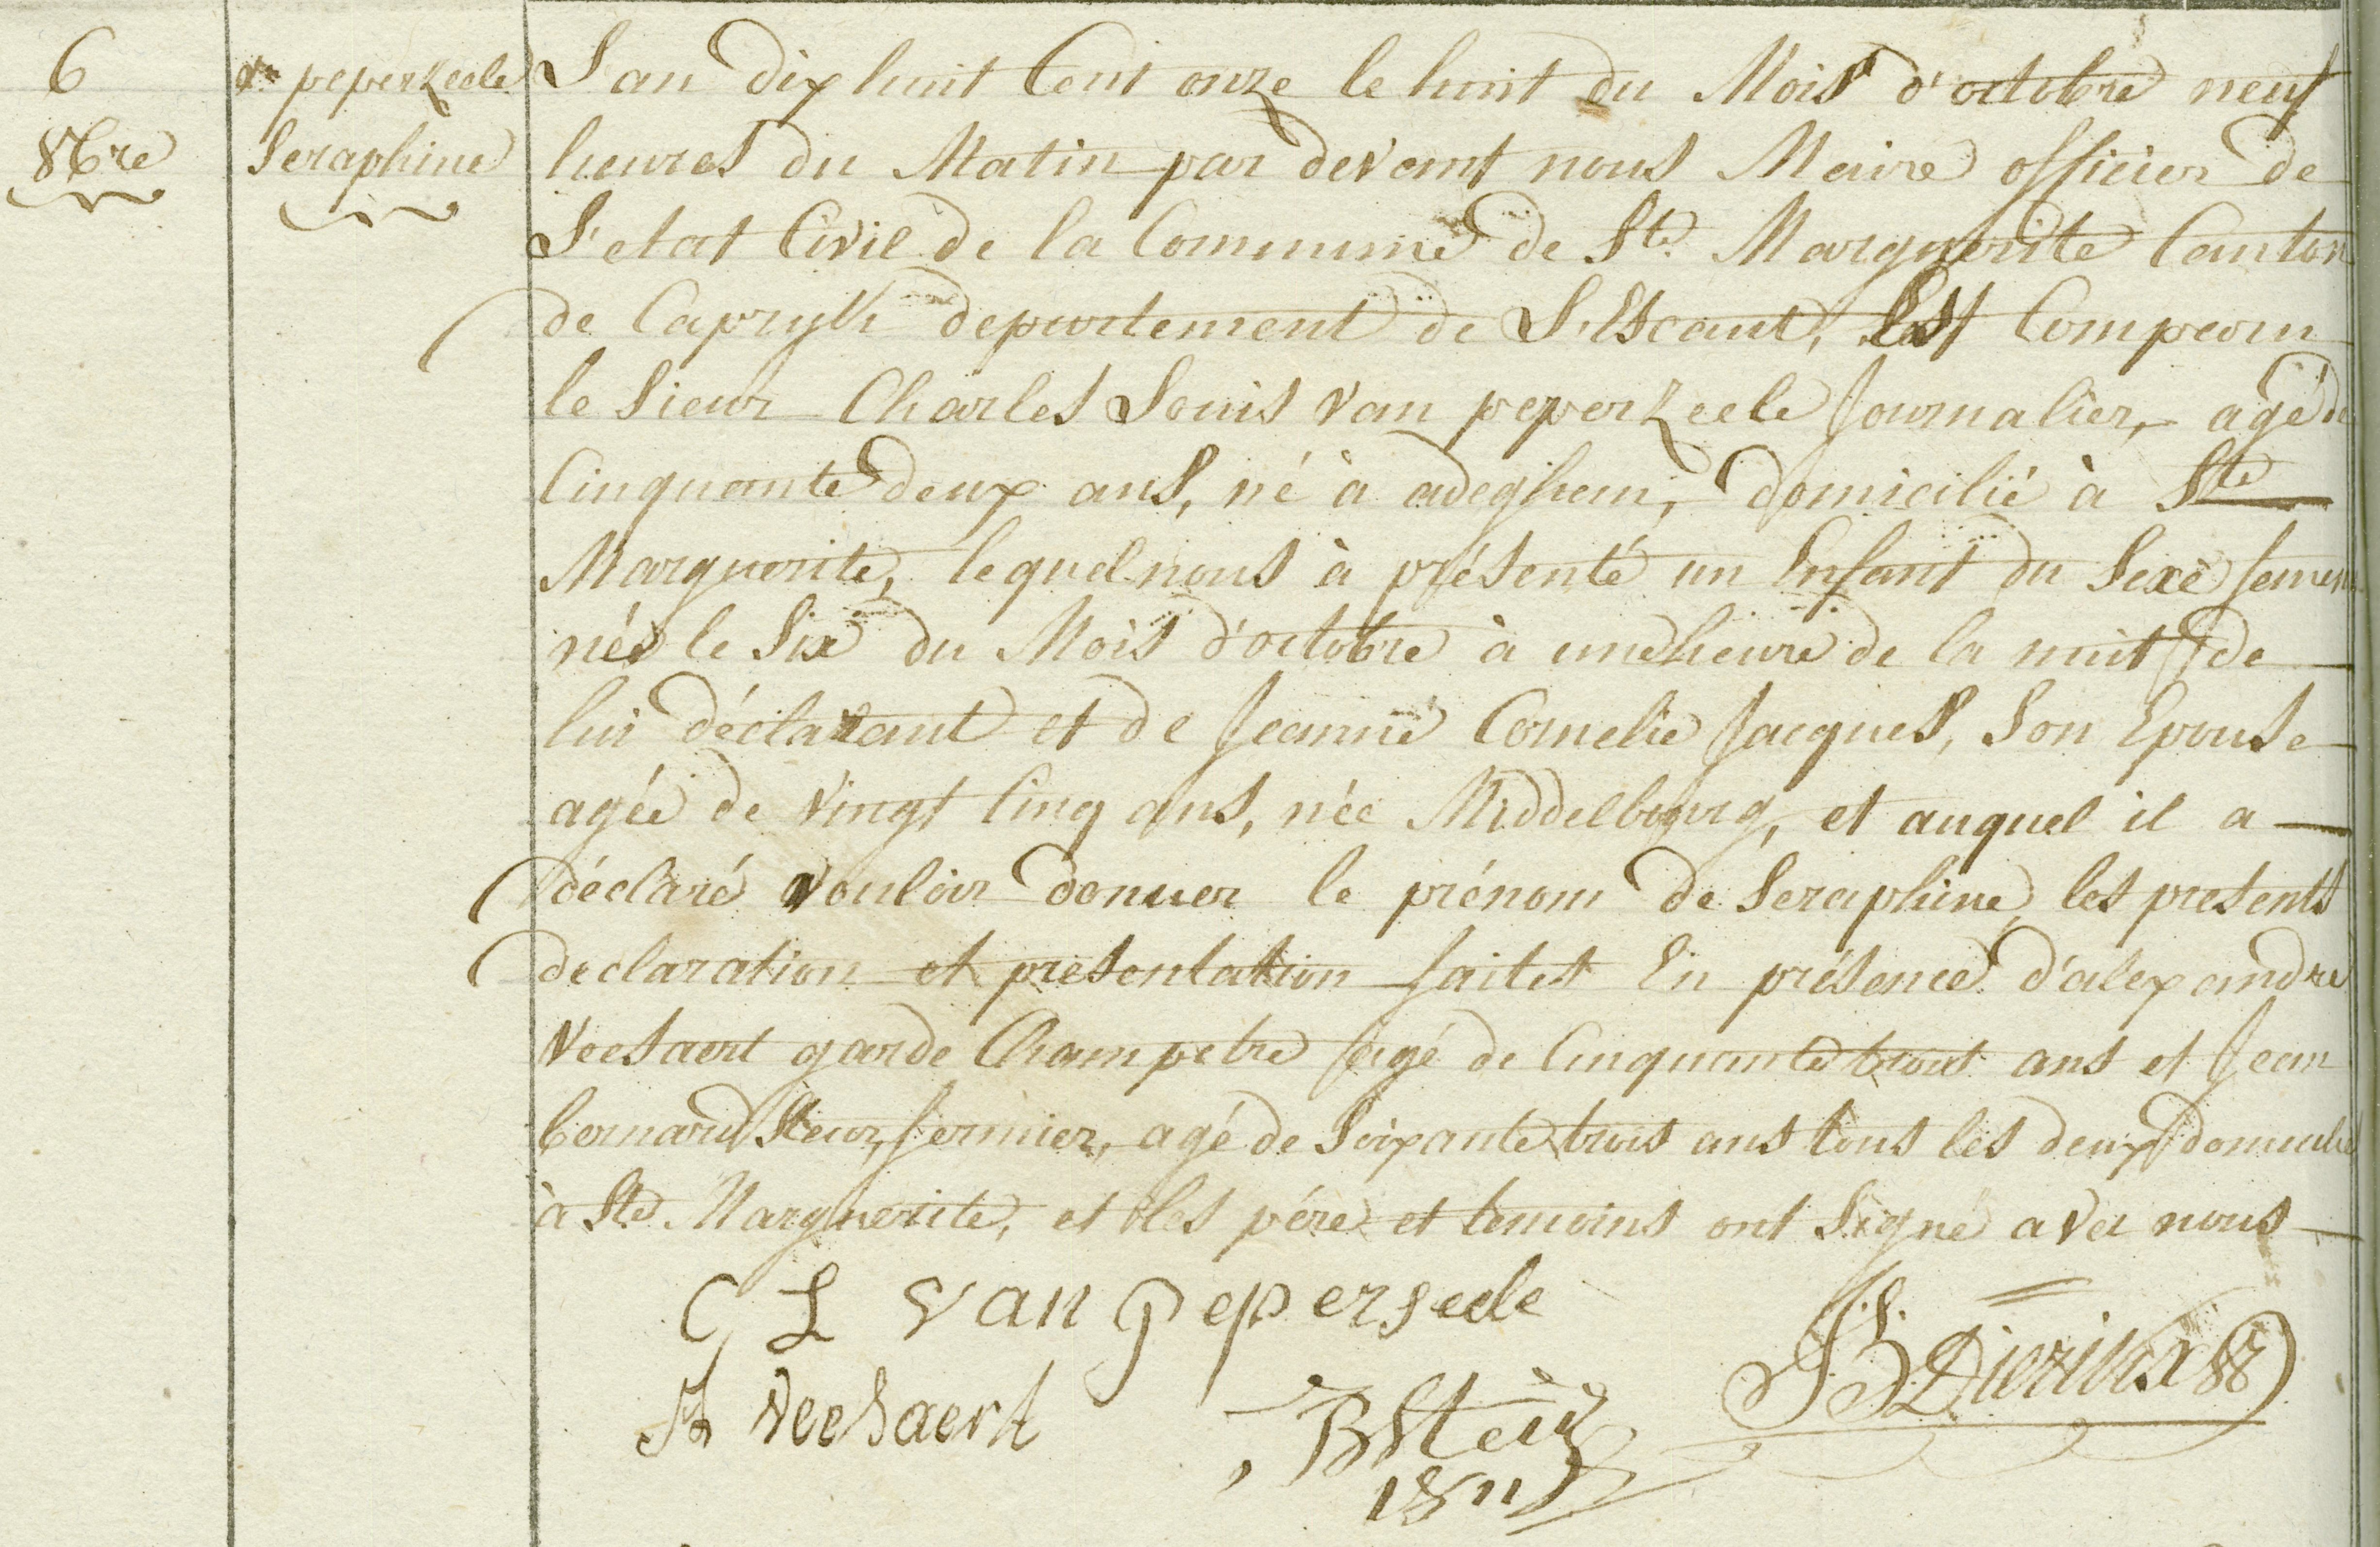 6
8bre
vn peperzeele
Seraphine
L'an dix huit Cent onze le huit du Mois d'octobre neuf
heures du Matin par devant nous Maire officier de
L'etat Civil de la Commune de Ste. Marguerite Canton
de Capryk departement de L'Escaut, Est Comparu
le Sieur Charles Louis van peperzeele Journalier, agé de
Cinquante deux ans, né à adeghem, domicilié à Ste
Marguerite, lequel nous à présenté un Enfant du Sexe femin
née le Six du Mois d'octobre à une heure de la nuit de
lui déclarant et de Jeanne Cornelie Jacques, Son Epouse
agée de vingt Cinq ans, née Middelbourg, et auquel il a
déclaré vouloir donner le prénom de Seraphine, les presents
declaration et presentation faites En présence d'alexandre
Veesaert garde Champetre agé de Cinquante trois ans et Jean
bernard Steur, fermier, agé de Soixante trois ans tous les deux domicilié
à Ste. Marguerite, et les pére et temoins ont Signé avec nous
C L van Peperseele
A Veesaert
JB Steur
1811